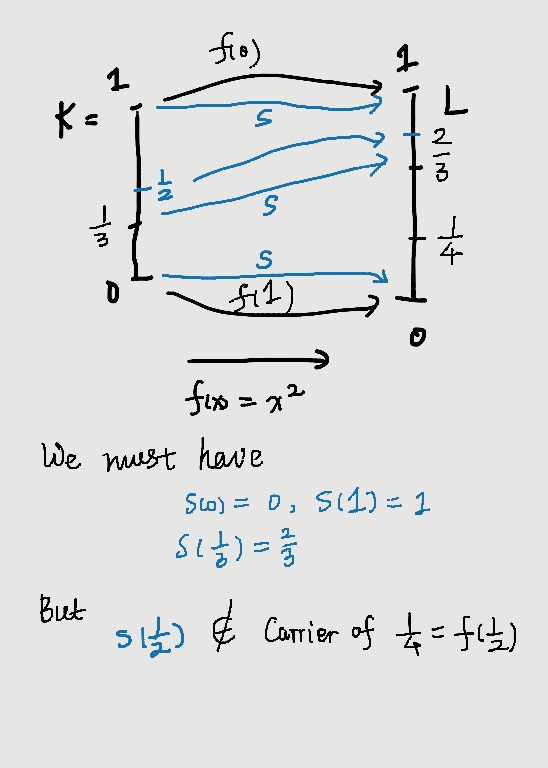 f(0)
1
1
K =
S
L
1/2
2/3
S
1/3
1/4
S
0
f(1)
0
f(x) = x²
We must have
S(0) = 0, S(1) = 1
S(1/3) = 2/3
But
S(1/2) ∉ Carrier of 1/4 = f(1/2)